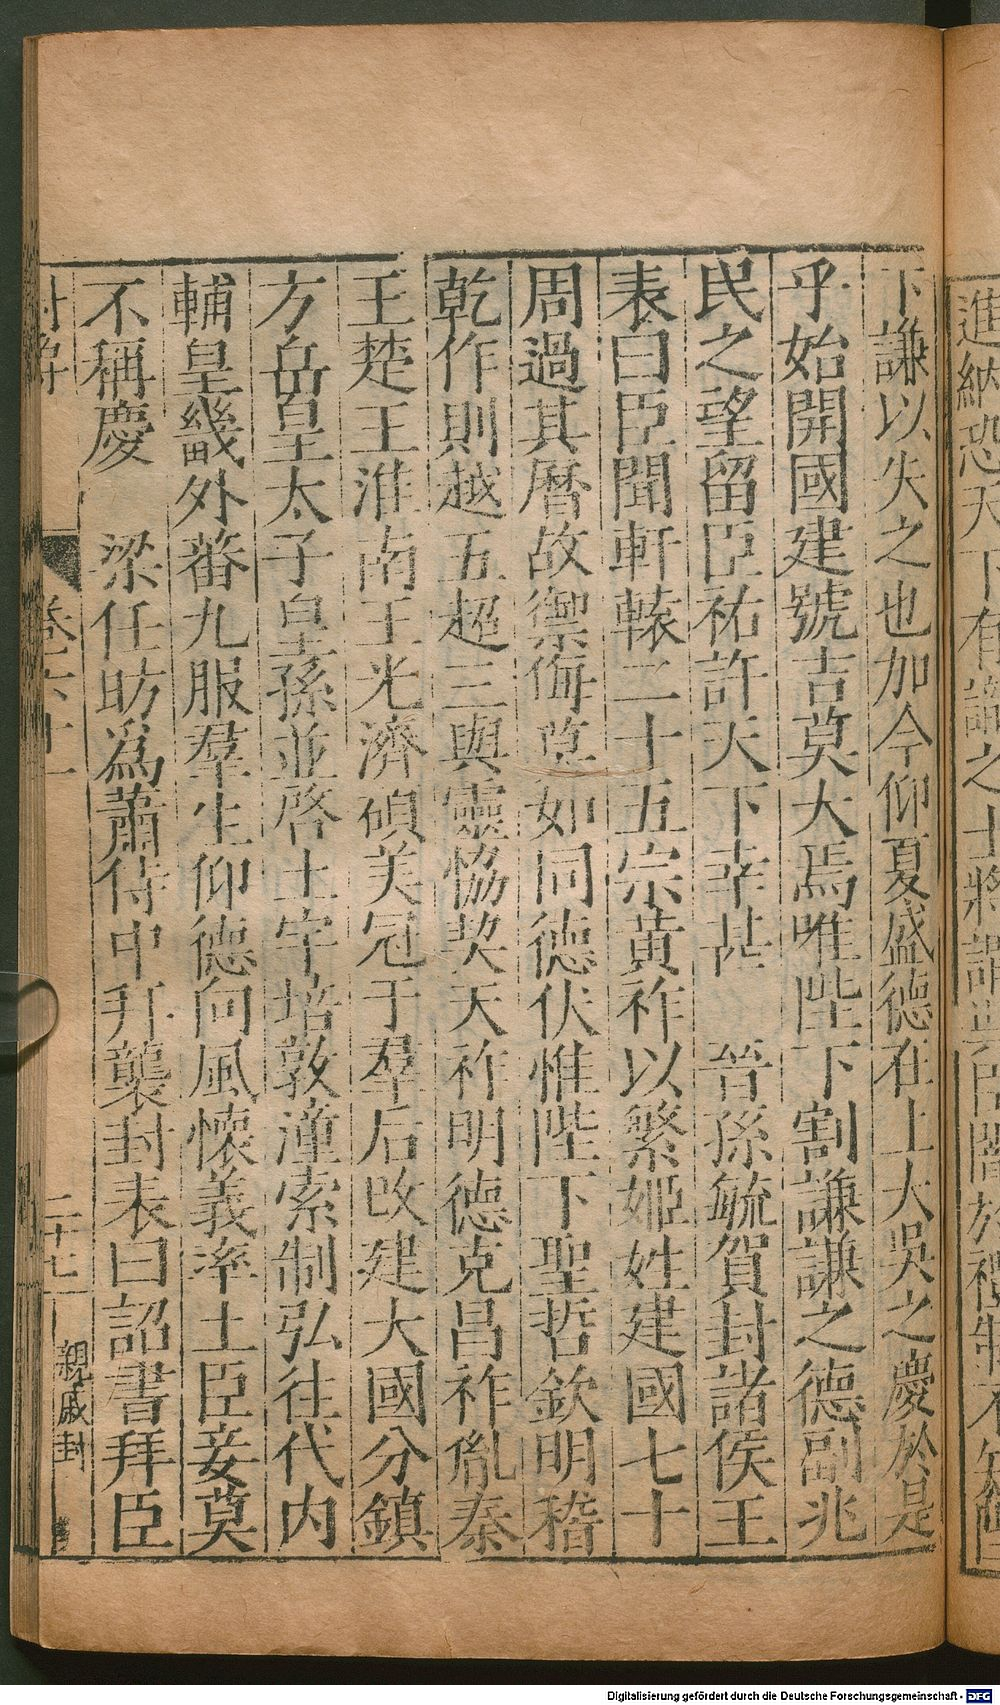 進納恐天下有識之士將謂
下謙以失之也加今仰夏盛德在上大吳之慶於是
乎始開國建號吉莫大焉唯陛下割謙謙之德副兆
民之望留臣祐許天下幸甚　晉孫毓賀封諸侯王
表曰臣聞軒轅二十五宗黃祚以繁姬姓建國七十
周過其曆故禦侮莫如同德伏惟陛下聖哲欽明稽
乾作則越五超三與靈恊契天祚明德克昌祚胤秦
王楚王淮南王光濟碩美冠于羣后改建大國分鎮
方岳皇太子皇孫並啓土宇培敦滝索制弘往代內
輔皇畿外蕃九服羣生仰德向風懷義率土臣妾莫
不稱慶　梁任昉爲蕭侍中拜襲封表曰詔書拜臣
卷六十一　二十七　親戚封
Digitalisierung gefördert durch die Deutsche Forschungsgemeinschaft - DFG